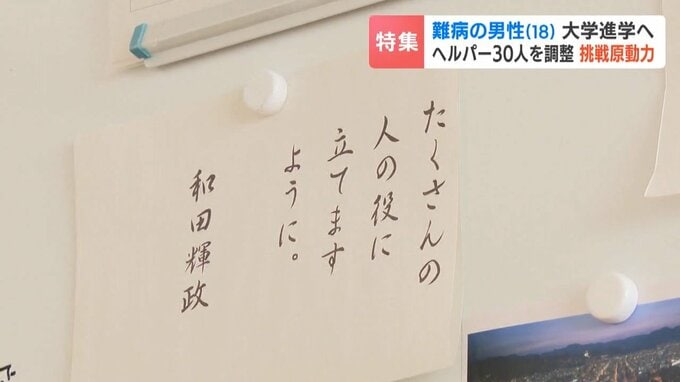 特集
難病の男性(18) 大学進学へ
ヘルパー30人を調整 挑戦原動力
たくさんの
人の役に
立てます
ように。
和田輝政